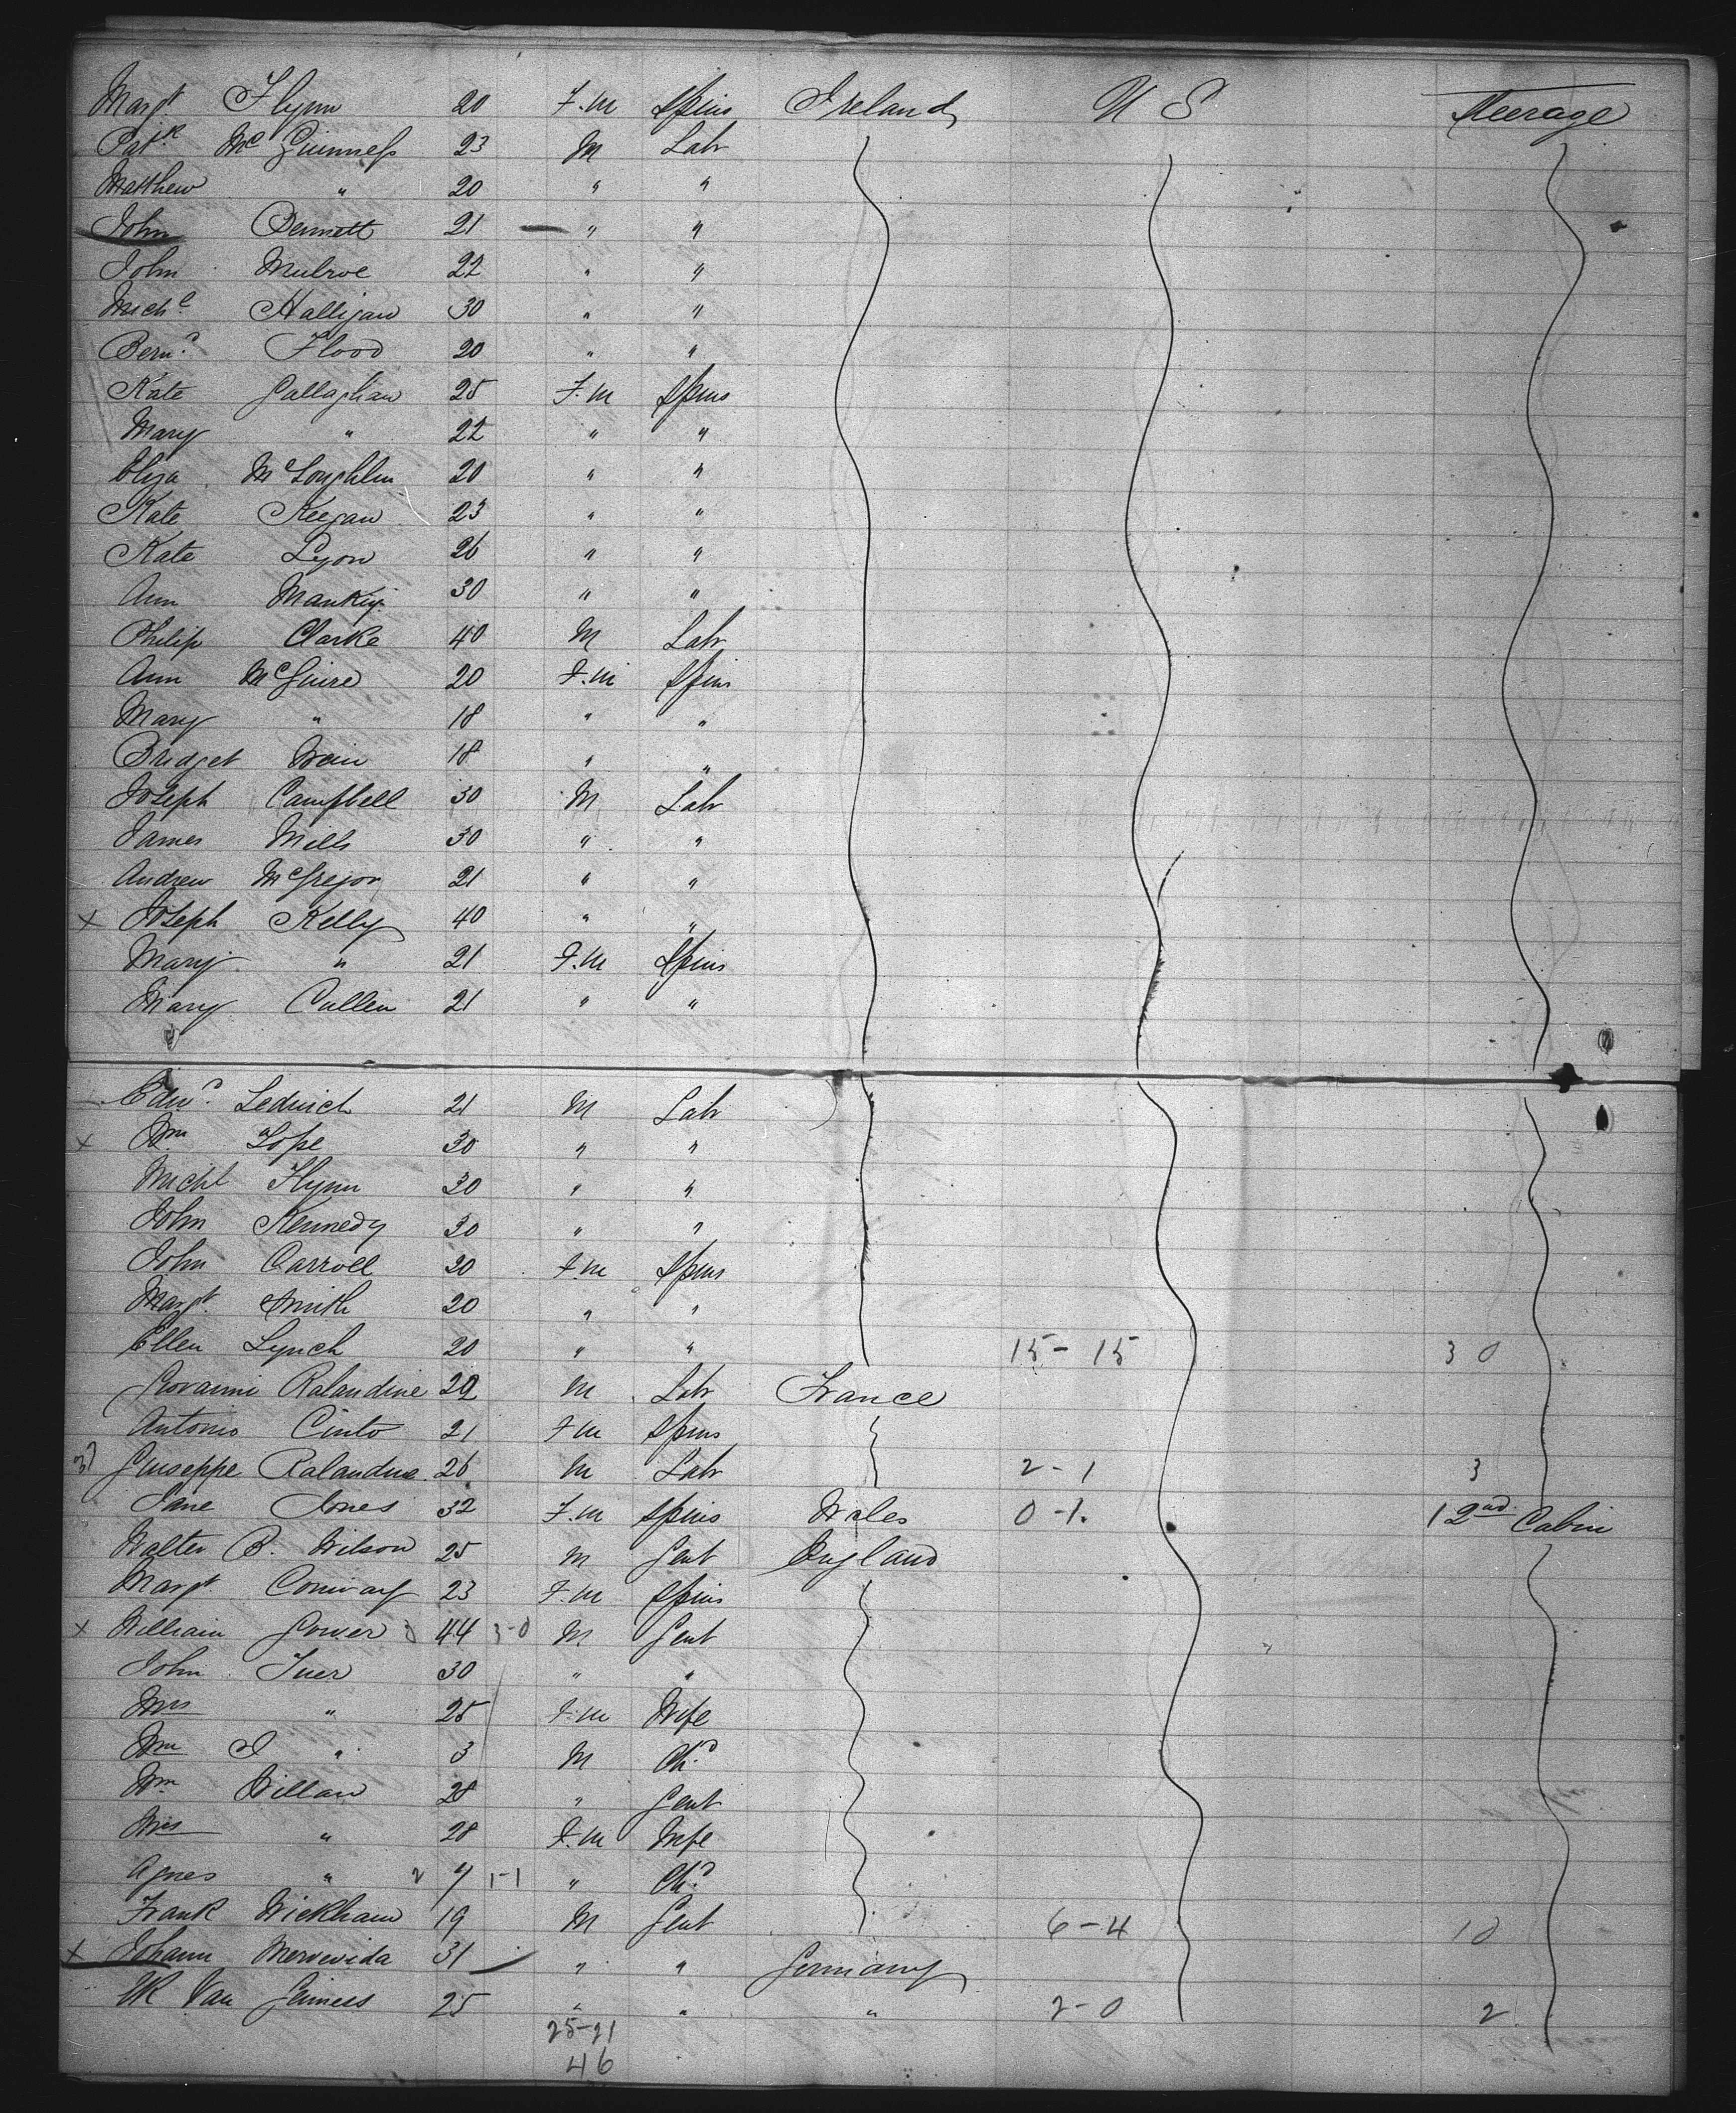 Margt Flynn 20 F.m Spins Ireland U S Steerage
Patk McGuinness 23 M Labr
Matthew " 20 " "
John Bennett 21 " "
John Mulroe 22 " "
Michl Halligan 30 " "
Bernd Flood 20 " "
Kate Gallaghan 25 F.m Spins
Mary " 22 " "
Eliza McLoughlin 20 " "
Kate Keegan 23 " "
Kate Lyon 26 " "
Ann 30 " "
Philip Clarke 40 M Labr
Ann McGuire 20 F.m Spins
Mary " 18 " "
Bridget 18 " "
Joseph Campbell 30 M Labr
James Mills 30 " "
Andrew McGregor 21 " "
x Joseph Kelly 40 " "
Mary " 21 F.m Spins
Mary Cullen 21 " "
Edwd Ledwich 21 M Labr
x Wm Lope 30 " "
Michl Flynn 30 " "
John Kennedy 30 " "
John Carroll 20 F.m Spins
Margt Smith 20 " "
Ellen Lynch 20 " " 15-15 30
Giovanni Ralandine 29 M Labr France
Antonio Cinto 21 F.m Spins
3) Giuseppe Ralandine 26 M Labr 2-1 3
Jane Jones 32 F.m Spins Wales 0-1. 1 2nd Cabin
Walter B. Wilson 25 M Gent England
Margt Conway 23 F.m Spins
x William Gower 3 44 3-0 M Gent
John Iuer 30 " "
Mrs " 25 F.m Wife
Wm J " 3 M Chd
Wm Willan 28 " Gent
Mrs " 28 F.m Wife
Agnes " 2 7 1-1 " Chd
Frank Wickham 19 M Gent 6-4 10
x Johann 31 " " Germany
Van 25 " " " 2-0 2
25-21
46